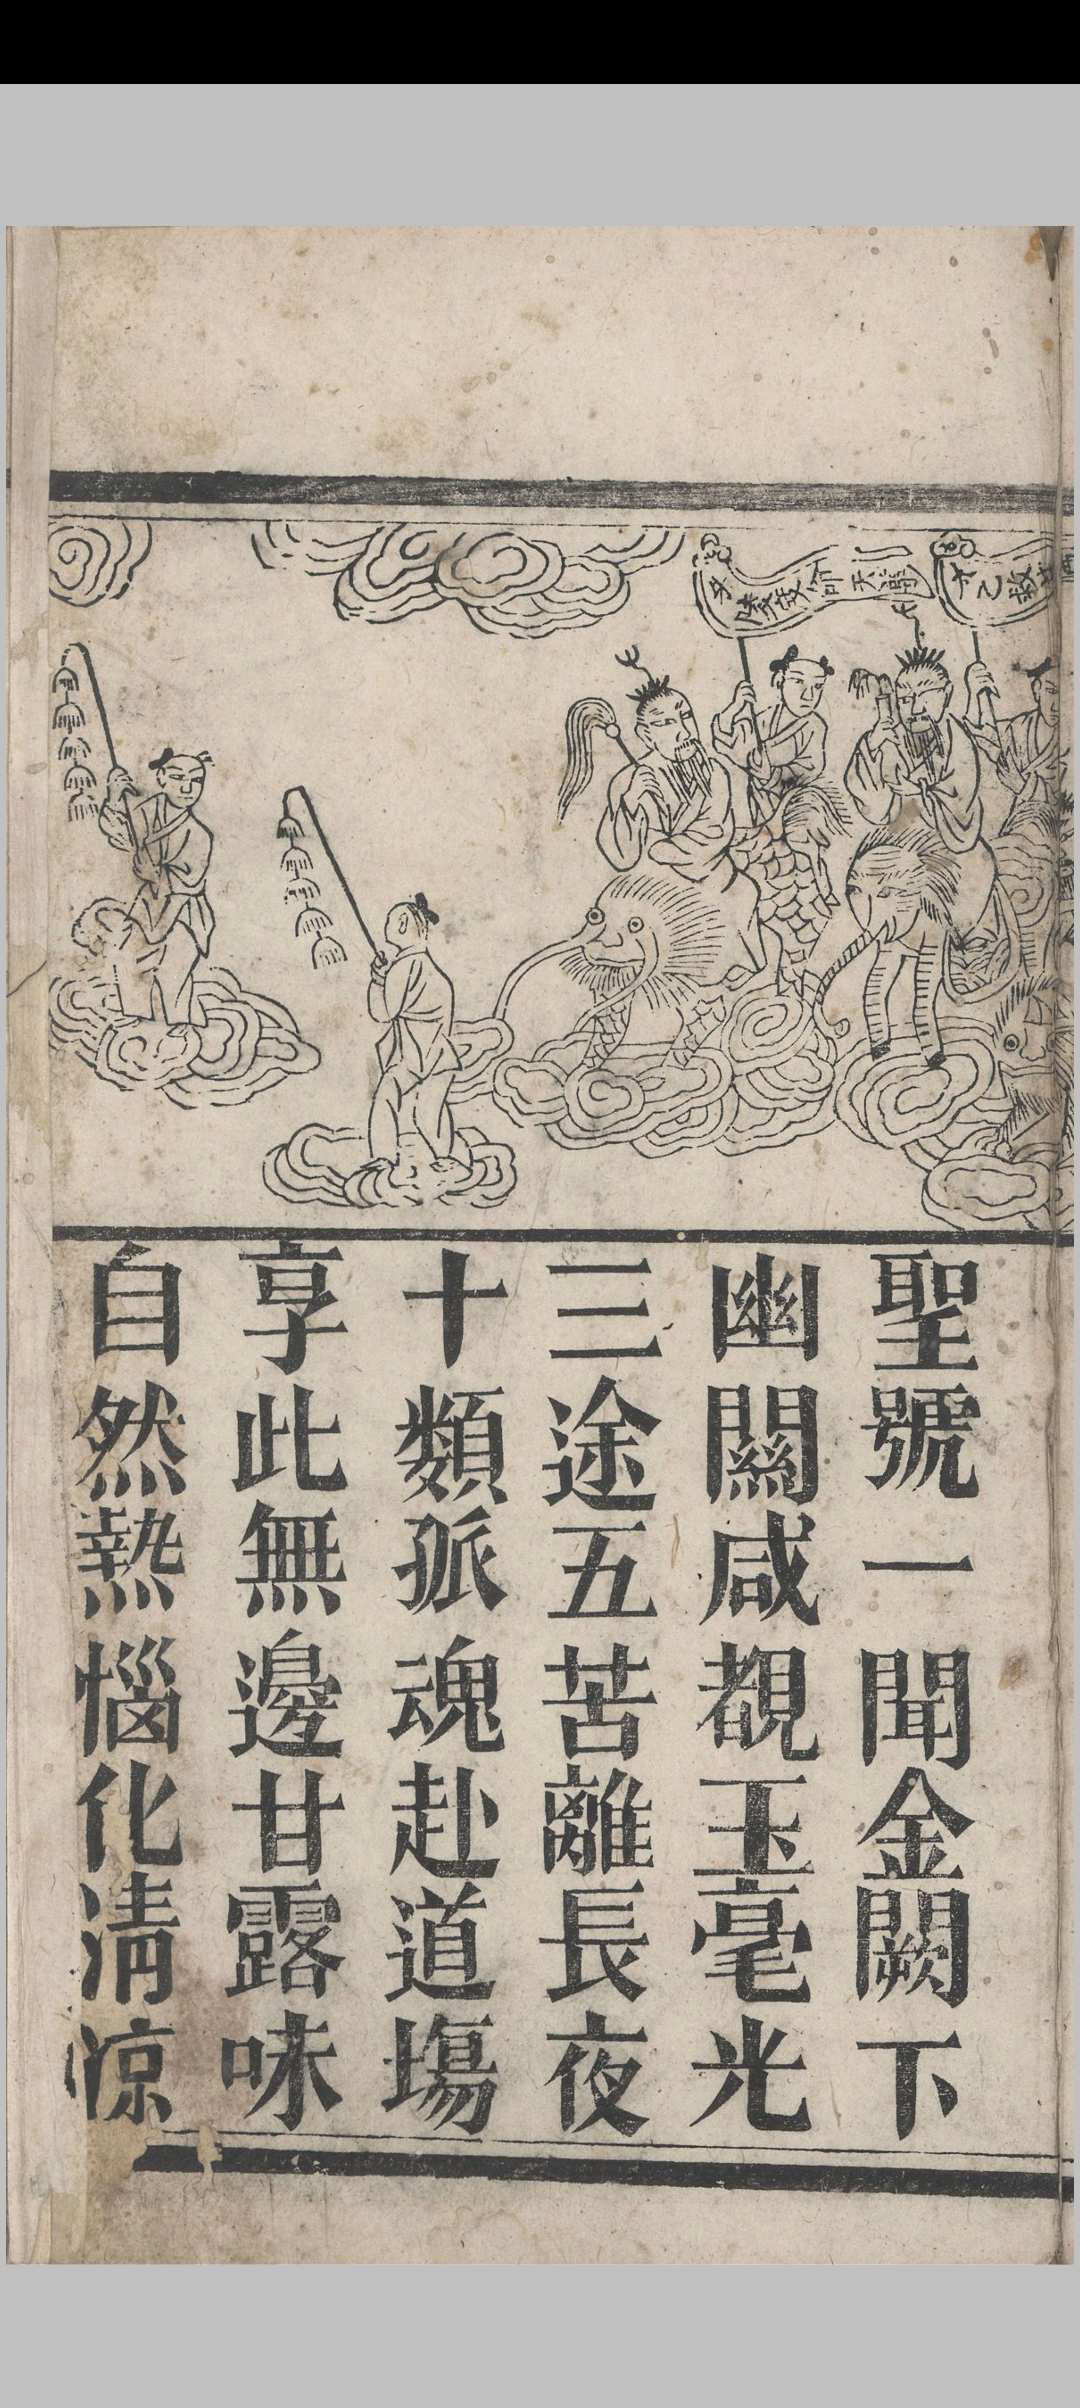 聖號一聞金闕下
幽關咸覩玉毫光
三途五苦離長夜
十類孤魂赴道塲
享此無邊甘露味
自然熱惱化淸凉